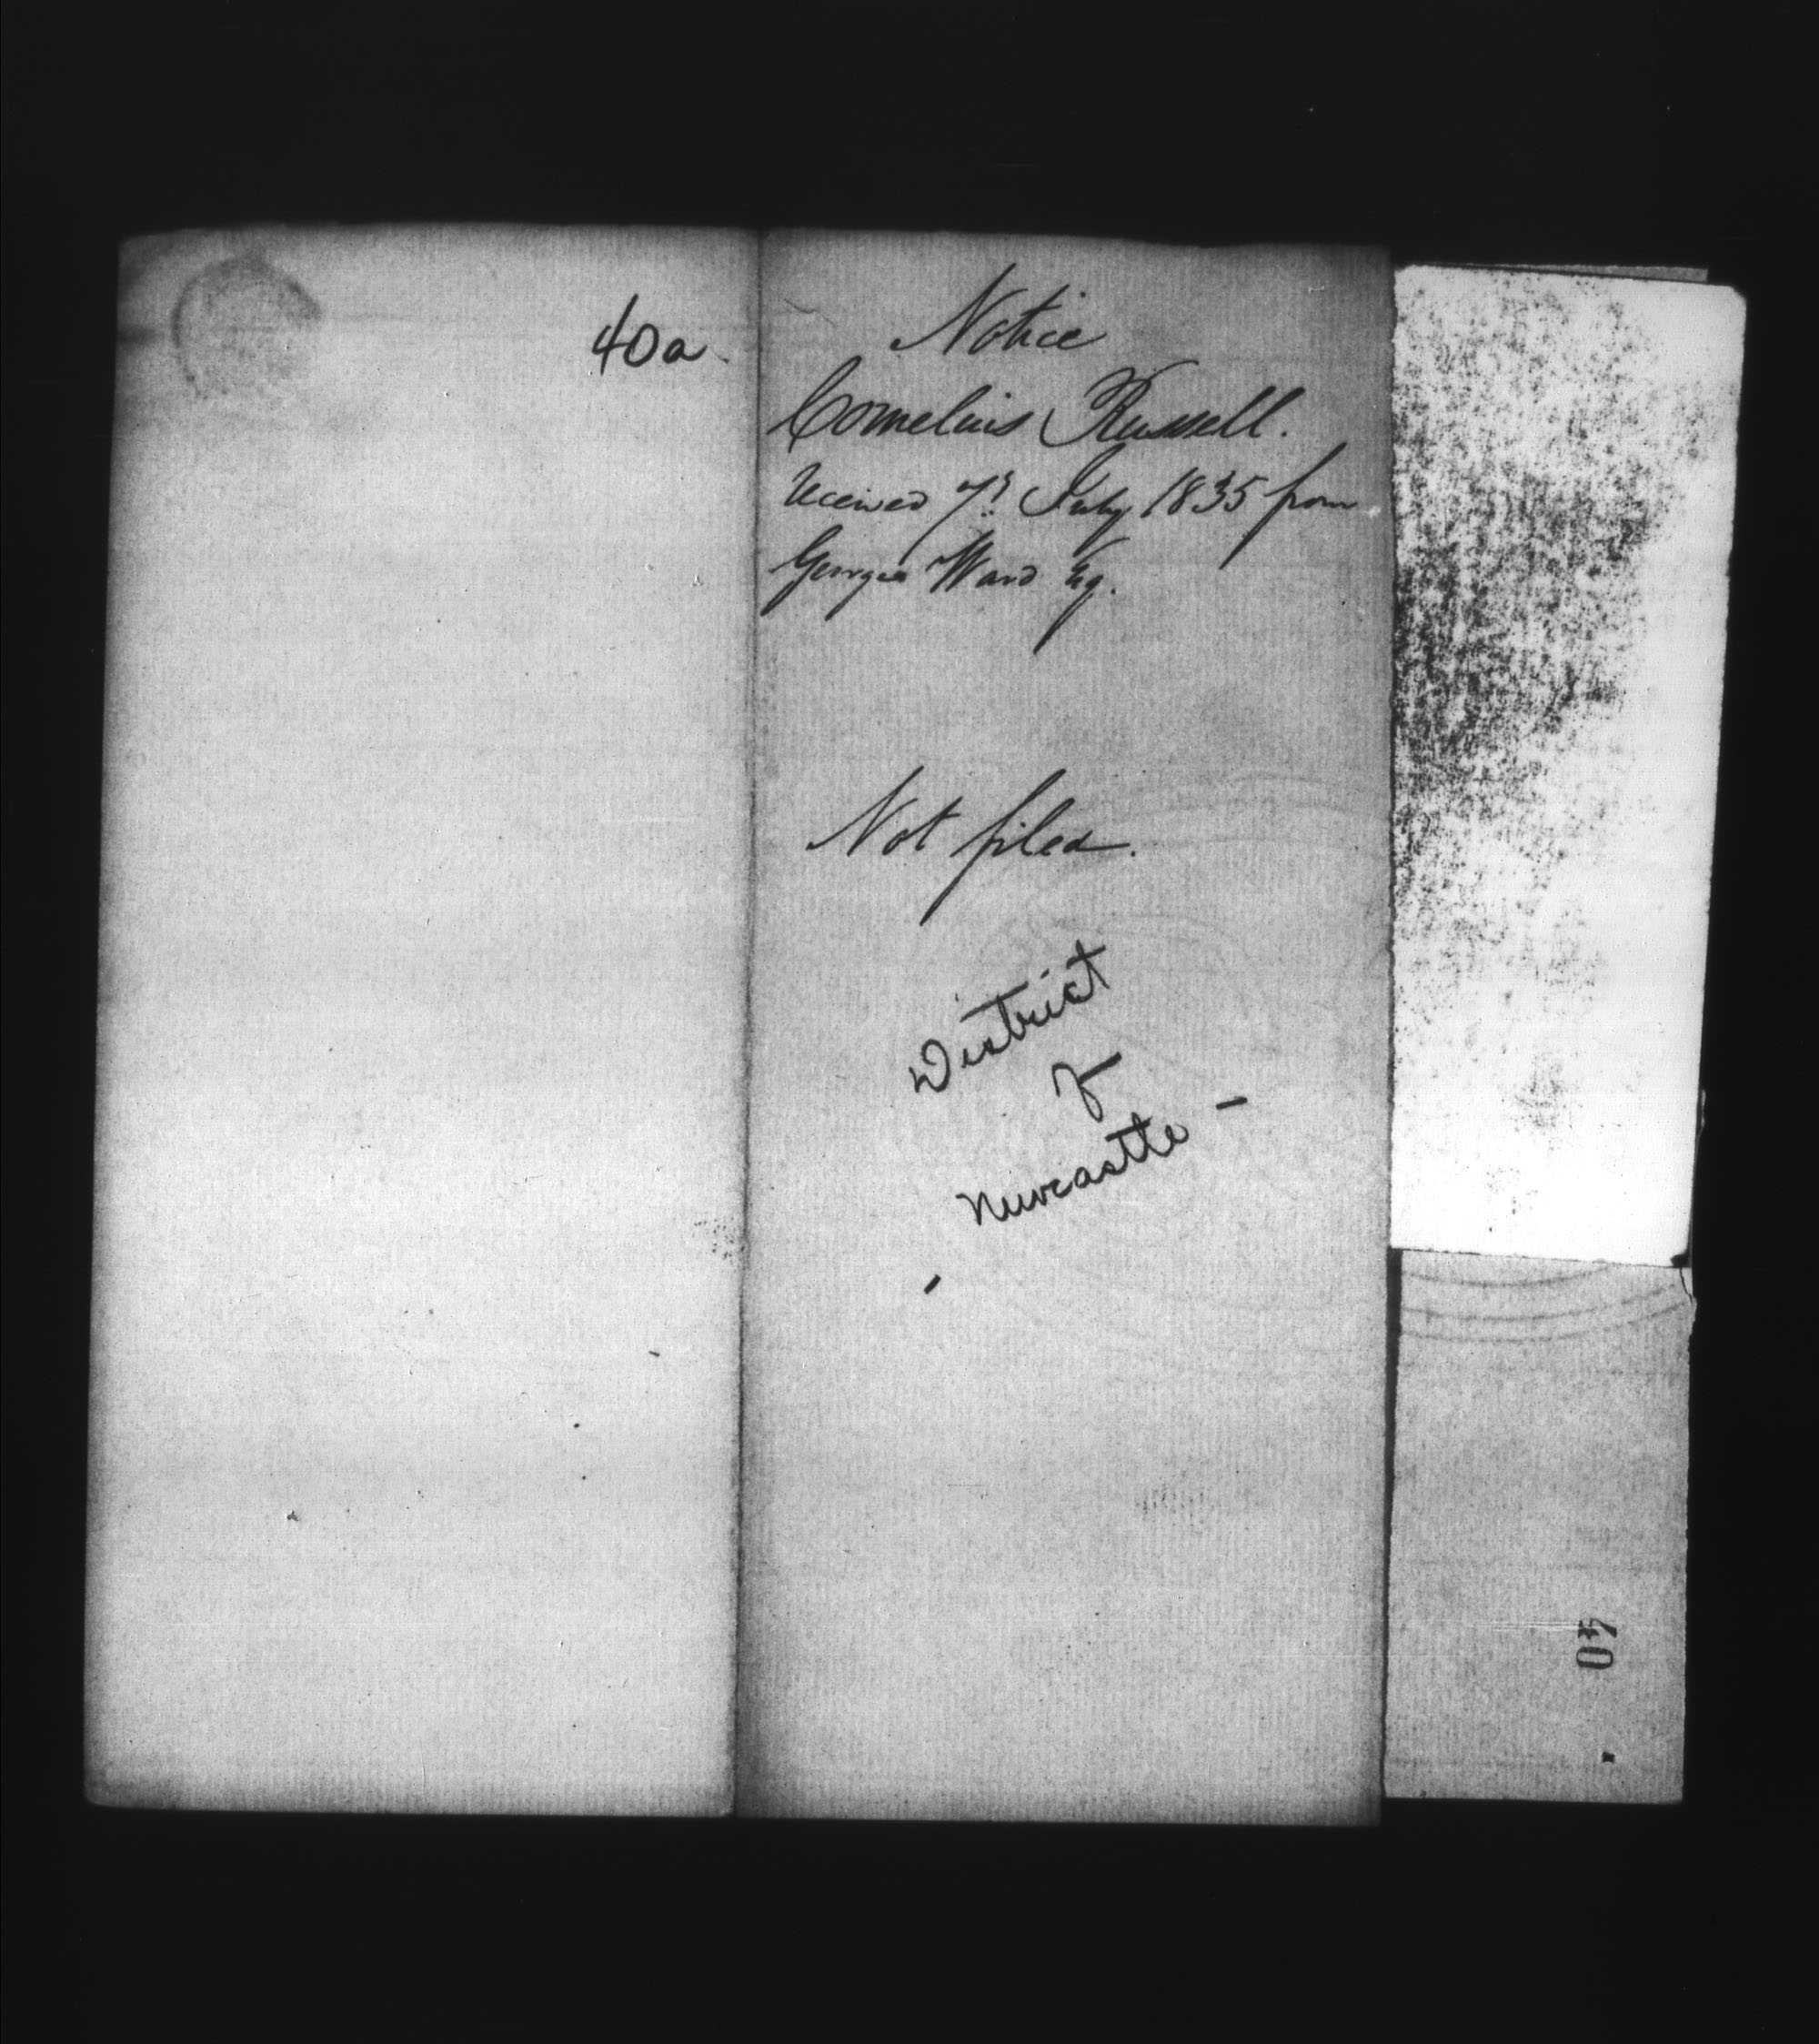 40a
Notice
Cornelius Russell.
Received 7th July 1835 from
George Ward Esq.
Not filed.
District
of
Newcastle -
40